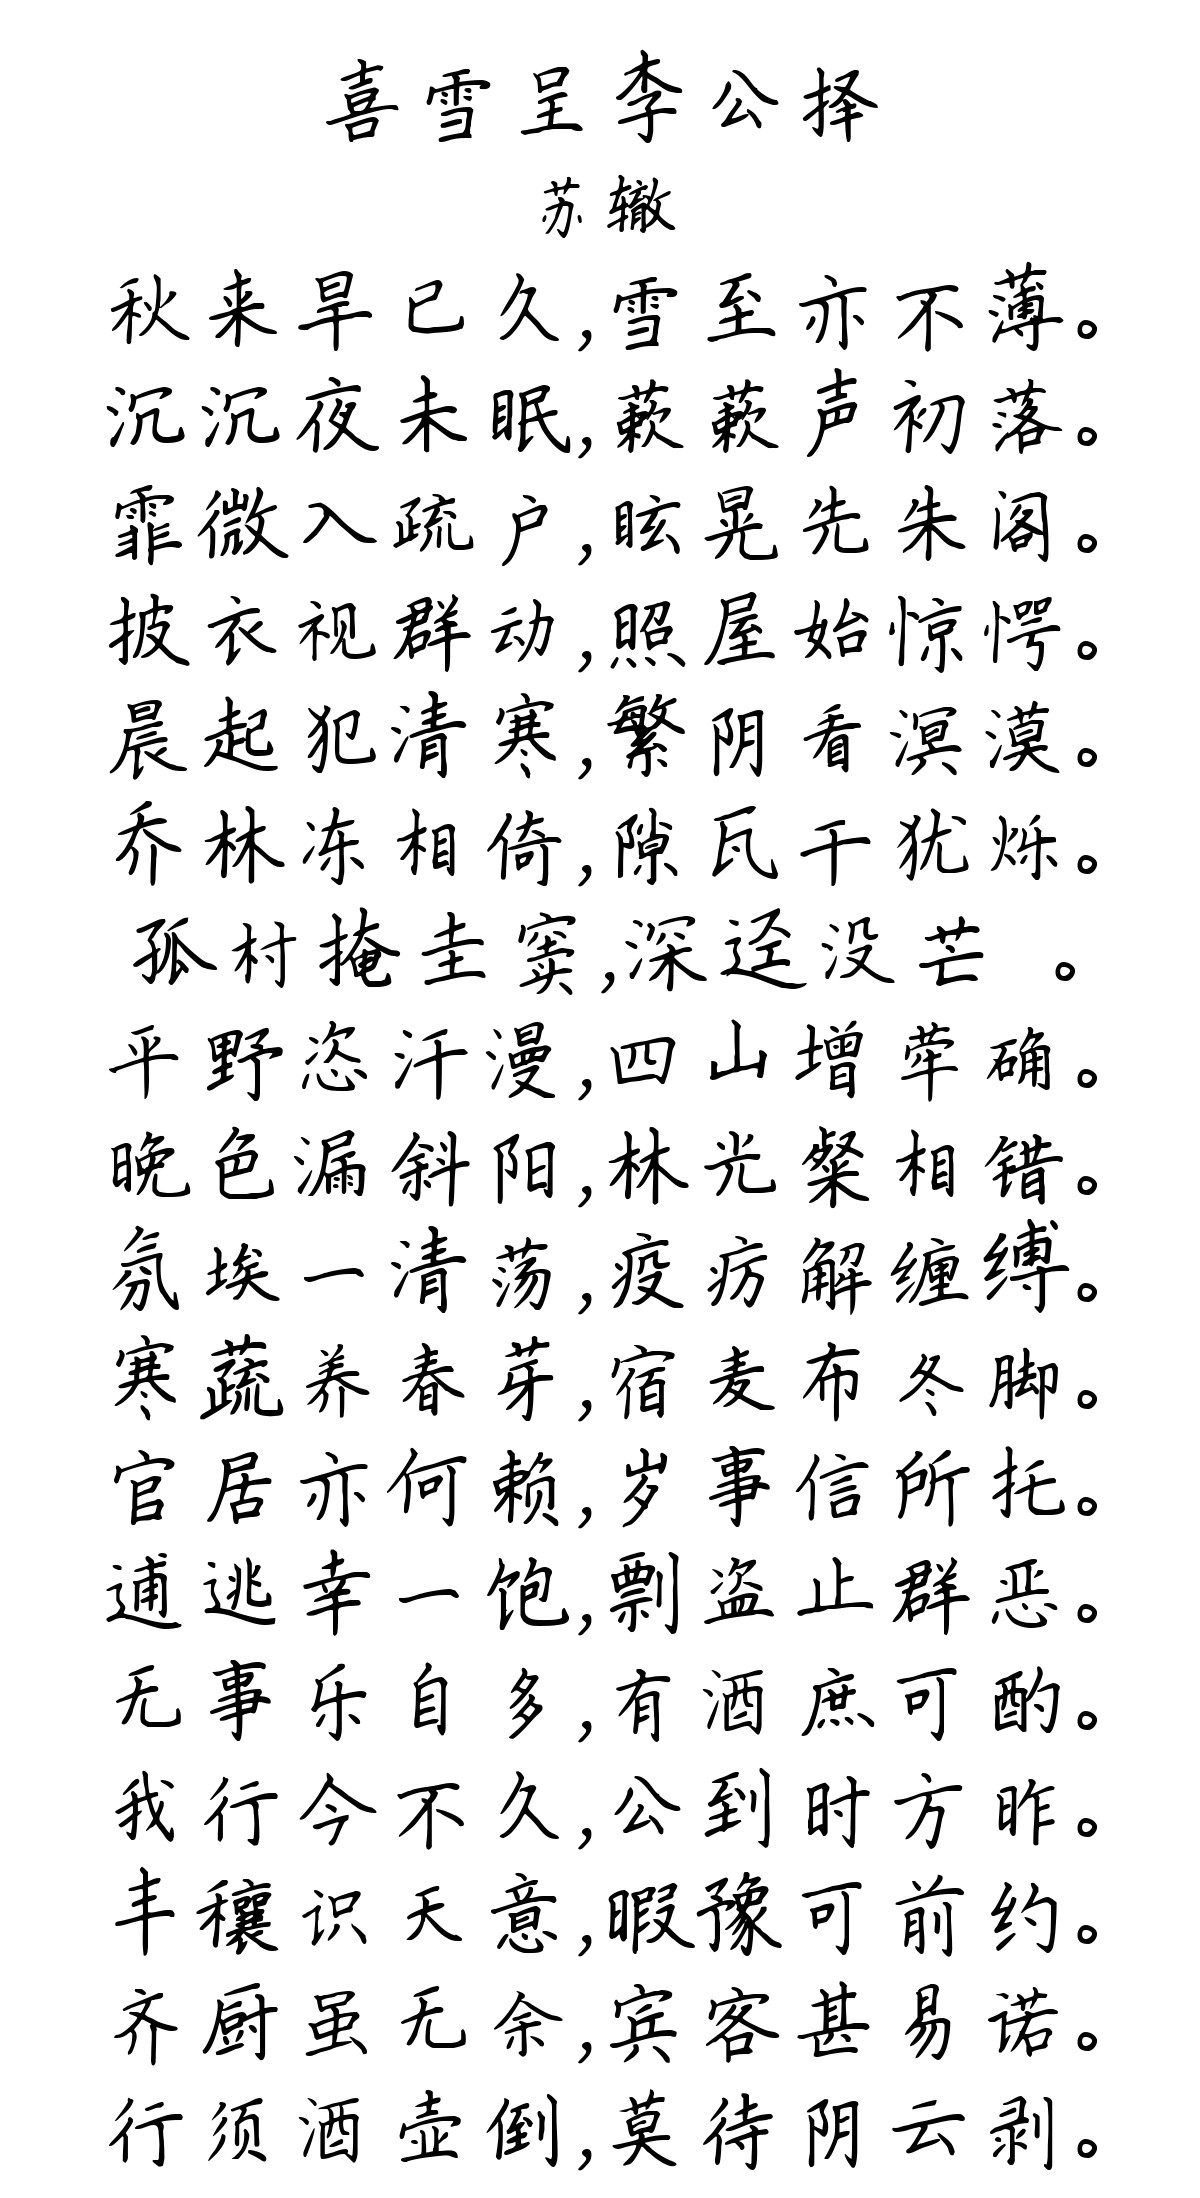 喜雪呈李公择
苏辙
秋来旱已久,雪至亦不薄。
沉沉夜未眠,蔌蔌声初落。
霏微入疏户,眩晃先朱阁。
披衣视群动,照屋始惊愕。
晨起犯清寒,繁阴看溟漠。
乔林冻相倚,隙瓦干犹烁。
孤村掩圭窦,深迳没芒 。
平野恣汗漫,四山增荦确。
晚色漏斜阳,林光粲相错。
氛埃一清荡,疫疠解缠缚。
寒蔬养春芽,宿麦布冬脚。
官居亦何赖,岁事信所托。
逋逃幸一饱,剽盗止群恶。
无事乐自多,有酒庶可酌。
我行今不久,公到时方昨。
丰穰识天意,暇豫可前约。
齐厨虽无余,宾客甚易诺。
行须酒壶倒,莫待阴云剥。